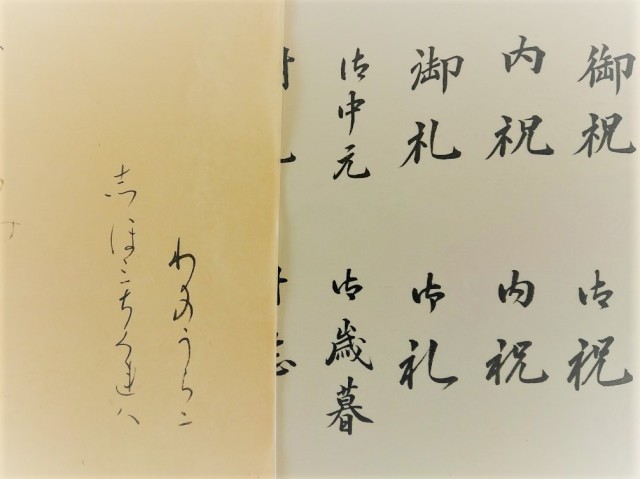 御祝
内祝
御礼
御中元
御祝
内祝
御礼
御歳暮
わかのうらニ
志ほミちくれハ